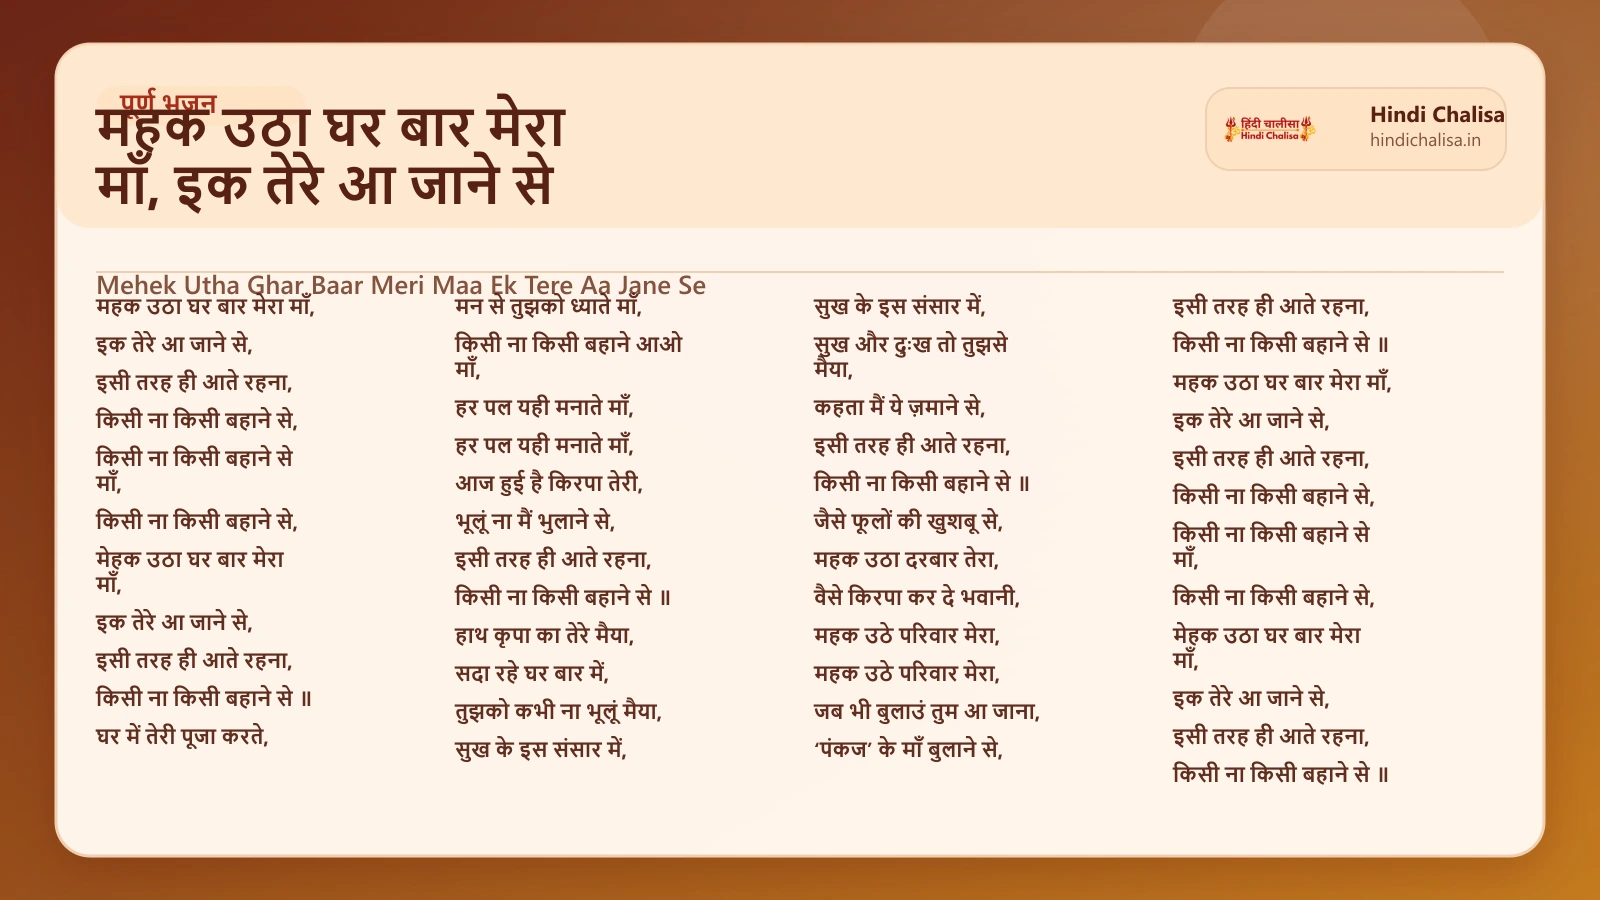 पूर्ण भजन
महक उठा घर बार मेरा
माँ, इक तेरे आ जाने से
हिंदी चालीसा
Hindi Chalisa
Hindi Chalisa
hindichalisa.in
Mehek Utha Ghar Baar Meri Maa Ek Tere Aa Jane Se
महक उठा घर बार मेरा माँ,
इक तेरे आ जाने से,
इसी तरह ही आते रहना,
किसी ना किसी बहाने से,
किसी ना किसी बहाने से
माँ,
किसी ना किसी बहाने से,
मेहक उठा घर बार मेरा
माँ,
इक तेरे आ जाने से,
इसी तरह ही आते रहना,
किसी ना किसी बहाने से ॥
घर में तेरी पूजा करते,
मन से तुझको ध्याते माँ,
किसी ना किसी बहाने आओ
माँ,
हर पल यही मनाते माँ,
हर पल यही मनाते माँ,
आज हुई है किरपा तेरी,
भूलूं ना मैं भुलाने से,
इसी तरह ही आते रहना,
किसी ना किसी बहाने से ॥
हाथ कृपा का तेरे मैया,
सदा रहे घर बार में,
तुझको कभी ना भूलूं मैया,
सुख के इस संसार में,
सुख के इस संसार में,
सुख और दुःख तो तुझसे
मैया,
कहता मैं ये ज़माने से,
इसी तरह ही आते रहना,
किसी ना किसी बहाने से ॥
जैसे फूलों की खुशबू से,
महक उठा दरबार तेरा,
वैसे किरपा कर दे भवानी,
महक उठे परिवार मेरा,
महक उठे परिवार मेरा,
जब भी बुलाउं तुम आ जाना,
‘पंकज’ के माँ बुलाने से,
इसी तरह ही आते रहना,
किसी ना किसी बहाने से ॥
महक उठा घर बार मेरा माँ,
इक तेरे आ जाने से,
इसी तरह ही आते रहना,
किसी ना किसी बहाने से,
किसी ना किसी बहाने से
माँ,
किसी ना किसी बहाने से,
मेहक उठा घर बार मेरा
माँ,
इक तेरे आ जाने से,
इसी तरह ही आते रहना,
किसी ना किसी बहाने से ॥